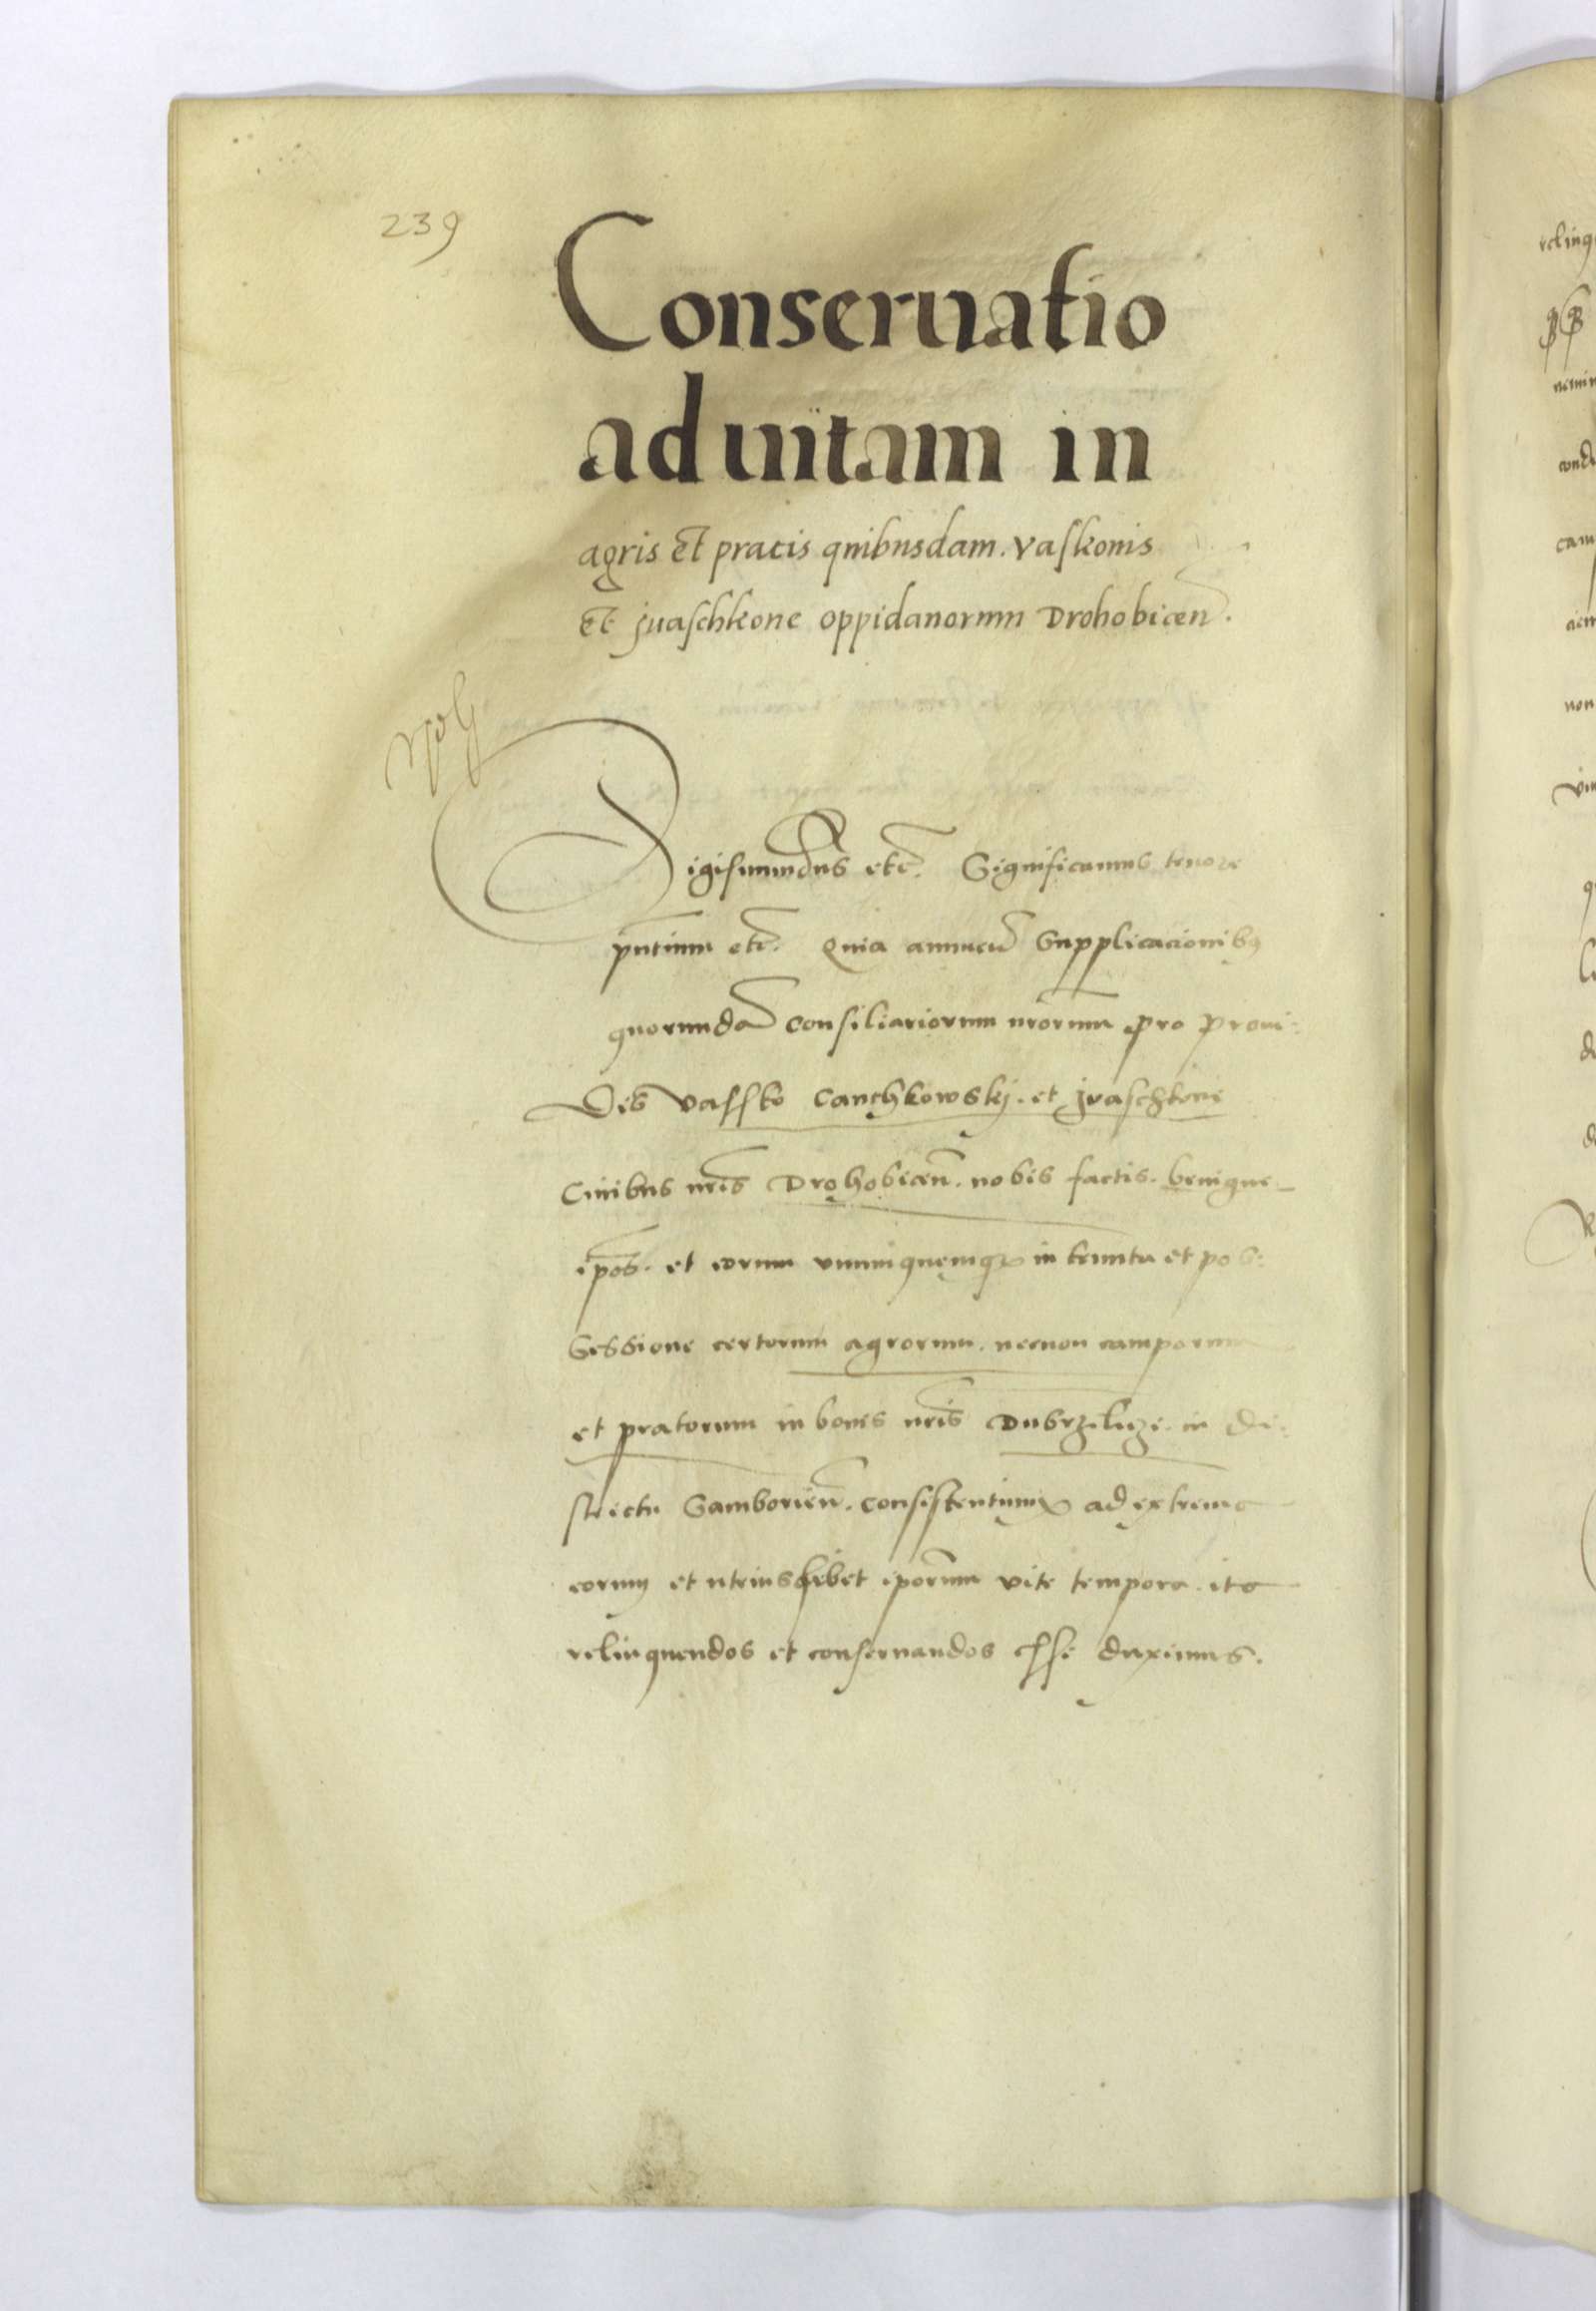 239
Conseruatio
ad uitam in
agris et pratis quibusdam. Vaskonis
et jvaschkone oppidanorum Drohobicen̄.
Sigismundus etc̄. Significamus tenore
pn̄tium etc̄. Quia annuen̄ Supplicacionibꝫ
quorundā consiliariorum nr̄orum pro Proui:
Dis vassko Canchkowskj. et jvaschkone
Ciuibus nr̄is Drohobicen̄. nobis factis. benigne
ip̄os. et eorum vnumquemqꝫ in tenuta et pos:
Sessione certorum agrorum. necnon camporum
et pratorum in bonis nr̄is Dubrziluzi. in di:
strictu Samborien̄. consistentium ad extrema
eorum et utriuslibet ip̄orum vite tempora. ita
relinquendos et conseruandos esse duximus.